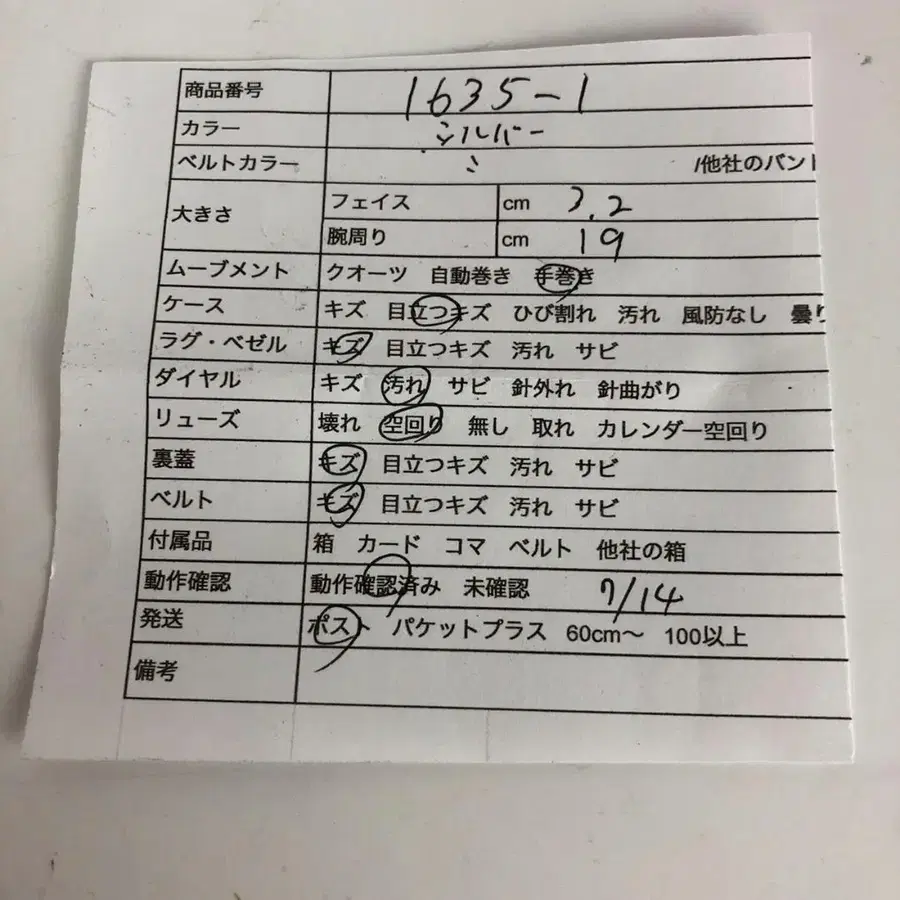 商品番号 1635-1
カラー シルバー
ベルトカラー ミ /他社のバント
大きさ フェイス cm 3.2
腕周り cm 19
ムーブメント クオーツ 自動巻き 手巻き
ケース キズ 目立つキズ ひび割れ 汚れ 風防なし 曇り
ラグ・ベゼル キズ 目立つキズ 汚れ サビ
ダイヤル キズ 汚れ サビ 針外れ 針曲がり
リューズ 壊れ 空回り 無し 取れ カレンダー空回り
裏蓋 キズ 目立つキズ 汚れ サビ
ベルト キズ 目立つキズ 汚れ サビ
付属品 箱 カード コマ ベルト 他社の箱
動作確認 動作確認済み 未確認 7/14
発送 ポスト パケットプラス 60cm〜 100以上
備考